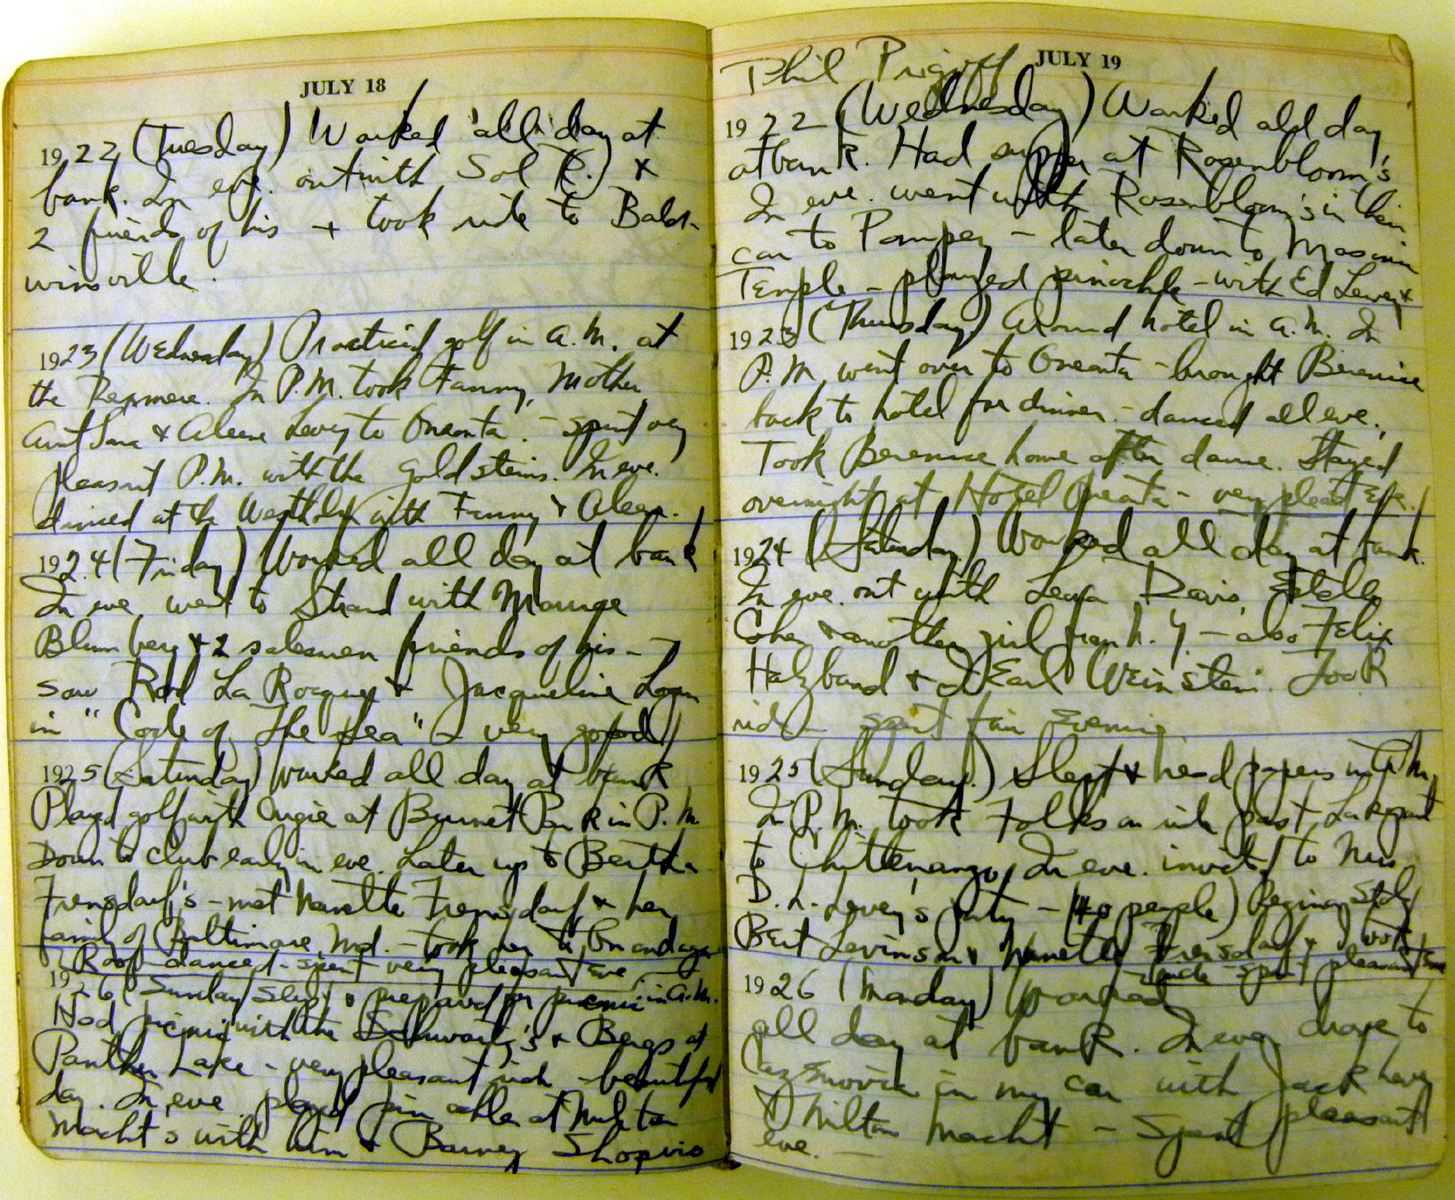 JULY 18
1922 (Tuesday) Worked all day at
bank. In eve. out with Sol R. &
2 friends of his + took ride to Bald-
winsville.
1923 (Wednesday) Practiced golf in A.M. at
the Rexmere. In P.M. took Fanny, Mother
Aunt Sara & Aleen Levy to Oneonta. - spent very
pleasant P.M. with the Goldsteins. In eve.
danced at the with Fanny & Aleen.
1924 (Friday) Worked all day at bank
In eve. went to Strand with Maurice
Blumberg & 2 salesmen friends of his -
saw Rod La Rocque & Jacqueline Logan
in "Code of The Sea" - very good
1925 (Saturday) Worked all day at bank
Played golf with Angie at Burnet Park in P.M.
Down to club early in eve. Later up to Bertha
Frensdorf's - met Nanette Frensdorf & her
family of Baltimore, Md. - took her to Onondaga
Roof - danced - spent very pleasant eve.
1926 (Sunday) Slept & prepared for picnic in A.M.
Had picnic with the Schwartz's & Bergs at
Panther Lake - very pleasant - beautiful
day. In eve. played pinochle at Milton
Macht's with him & Barney Shapiro
JULY 19
Phil Prigoff
1922 (Wednesday) Worked all day
at bank. Had supper at Rosenbloom's
In eve. went with Rosenbloom's in their
car to Pompey - later down to Masonic
Temple - played pinochle - with Ed Levey &
1923 (Thursday) Around hotel in A.M. In
P.M. went over to Oneonta - brought Berenice
back to hotel for dinner - danced all eve.,
Took Berenice home after dance. Stayed
overnight at Hotel Oneonta - very pleast Eve.
1924 (Saturday) Worked all day at bank.
In eve. out with Lena Davis, Estelle
Cohen & another girl from N.Y. - also Felix
Holzband & Earl Weinstein. Took
ride - spent fair evening.
1925 (Sunday) Slept & read papers in A.M.
In P.M. took Folks on ride past Lakeport
to Chittenango. In eve. invited to Mrs.
D. L. Levey's party - (40 people) Regina Stolz
Bert Levinson & Nanette Frensdorf & I took
ride - spent pleasant eve
1926 (Monday) Worked
all day at bank. In eve. drove to
Cazenovia in my car with Jack Levy
& Milton Macht - spent pleasant
eve. -